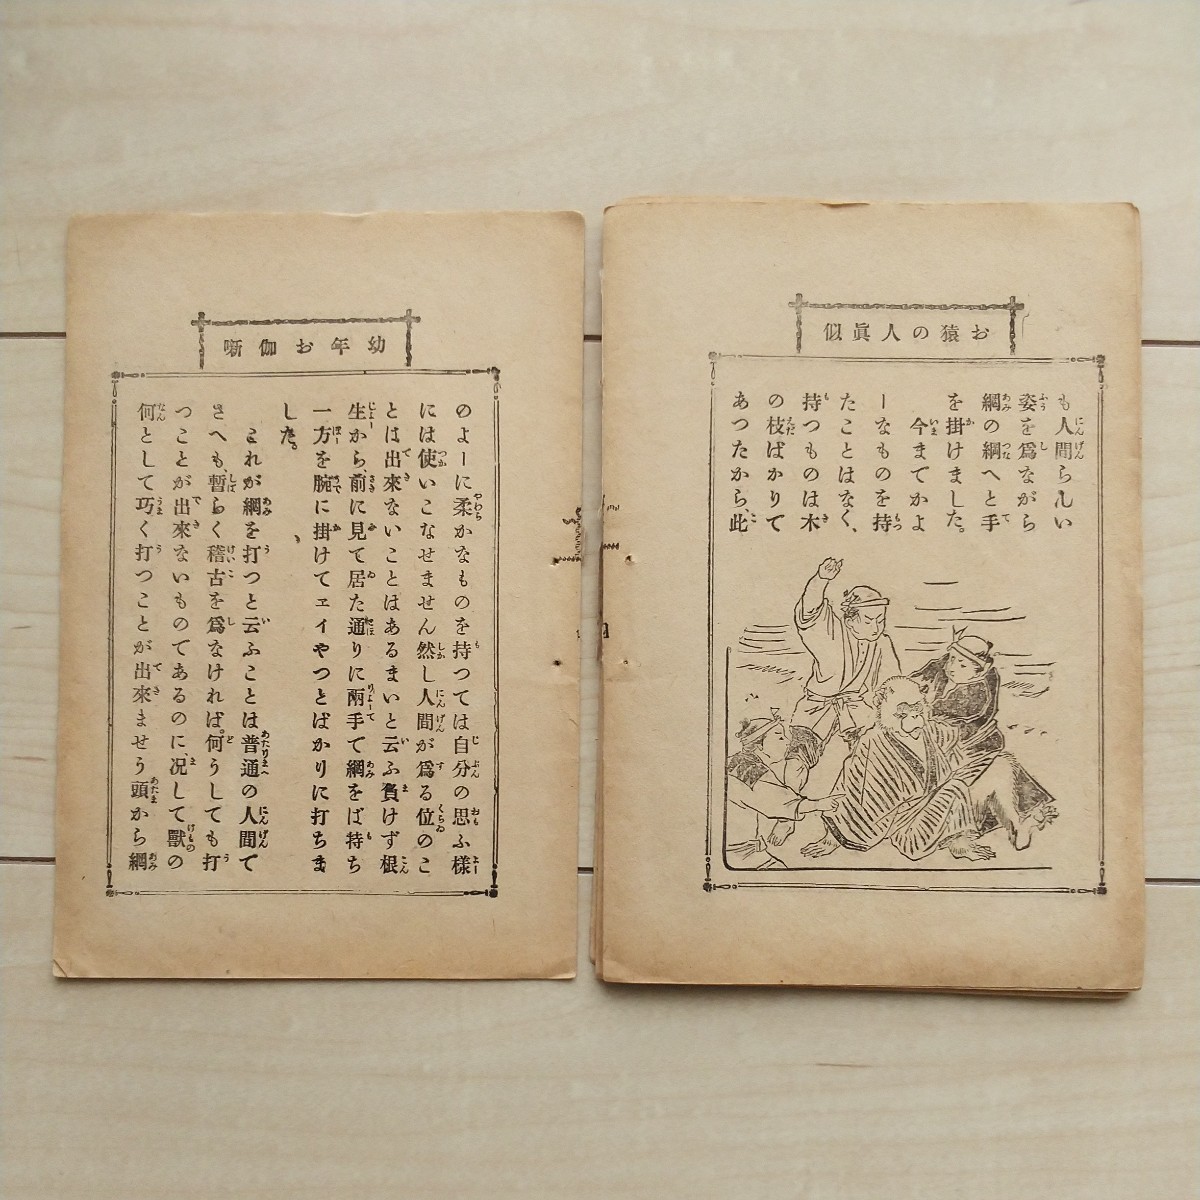 お猿の人眞似
も人間らしい
姿を爲ながら
網の綱へと手
を掛けました。
今までかよ
ーなものを持
たことはなく、
持つものは木
の枝ばかりて
あつたから、此
幼年お伽噺
のよーに柔かなものを持つては自分の思ふ樣
には使いこなせません然し人間が爲る位のこ
とは出來ないことはあるまいと云ふ負けず根
生から、前に見て居た通りに兩手て網をば持ち
一方を腕に掛けてエイやつとばかりに打ちま
した。
これが網を打つと云ふことは普通の人間て
さへも、暫らく稽古を爲なければ。何うしても打
つことが出來ないものてあるのに、况して獸の
何として巧く打つことが出來ませう頭から網